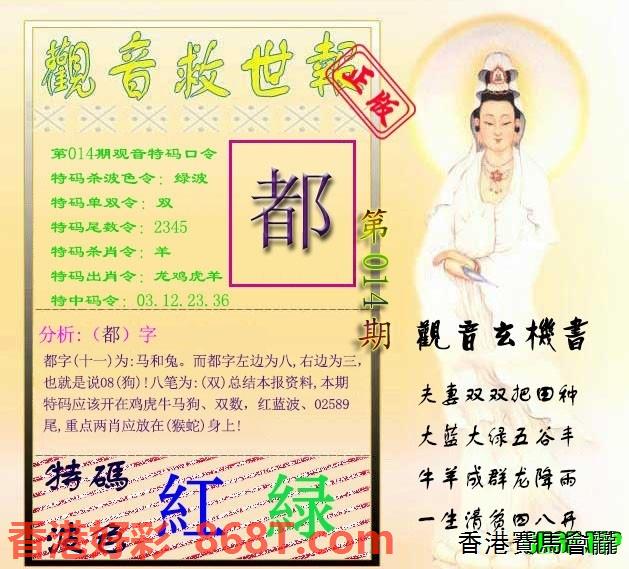 觀音救世報
正版
第014期观音特码口令
特码杀波色令：绿波
特码单双令：双
特码尾数令：2345
特码杀肖令：羊
特码出肖令：龙鸡虎羊
特中码令：03.12.23.36
都
第014期
分析:（都）字
都字(十一)为:马和兔。而都字左边为八,右边为三,
也就是说08(狗)!八笔为:(双)总结本报资料,本期
特码应该开在鸡虎牛马狗、双数，红蓝波、02589
尾,重点两肖应放在(猴蛇)身上!
特碼
波色
紅 绿
觀音玄機書
夫妻双双把田种
大蓝大绿五谷丰
牛羊成群龙降雨
一生清贫四八开
香港好彩 868T.com
香港賽馬會